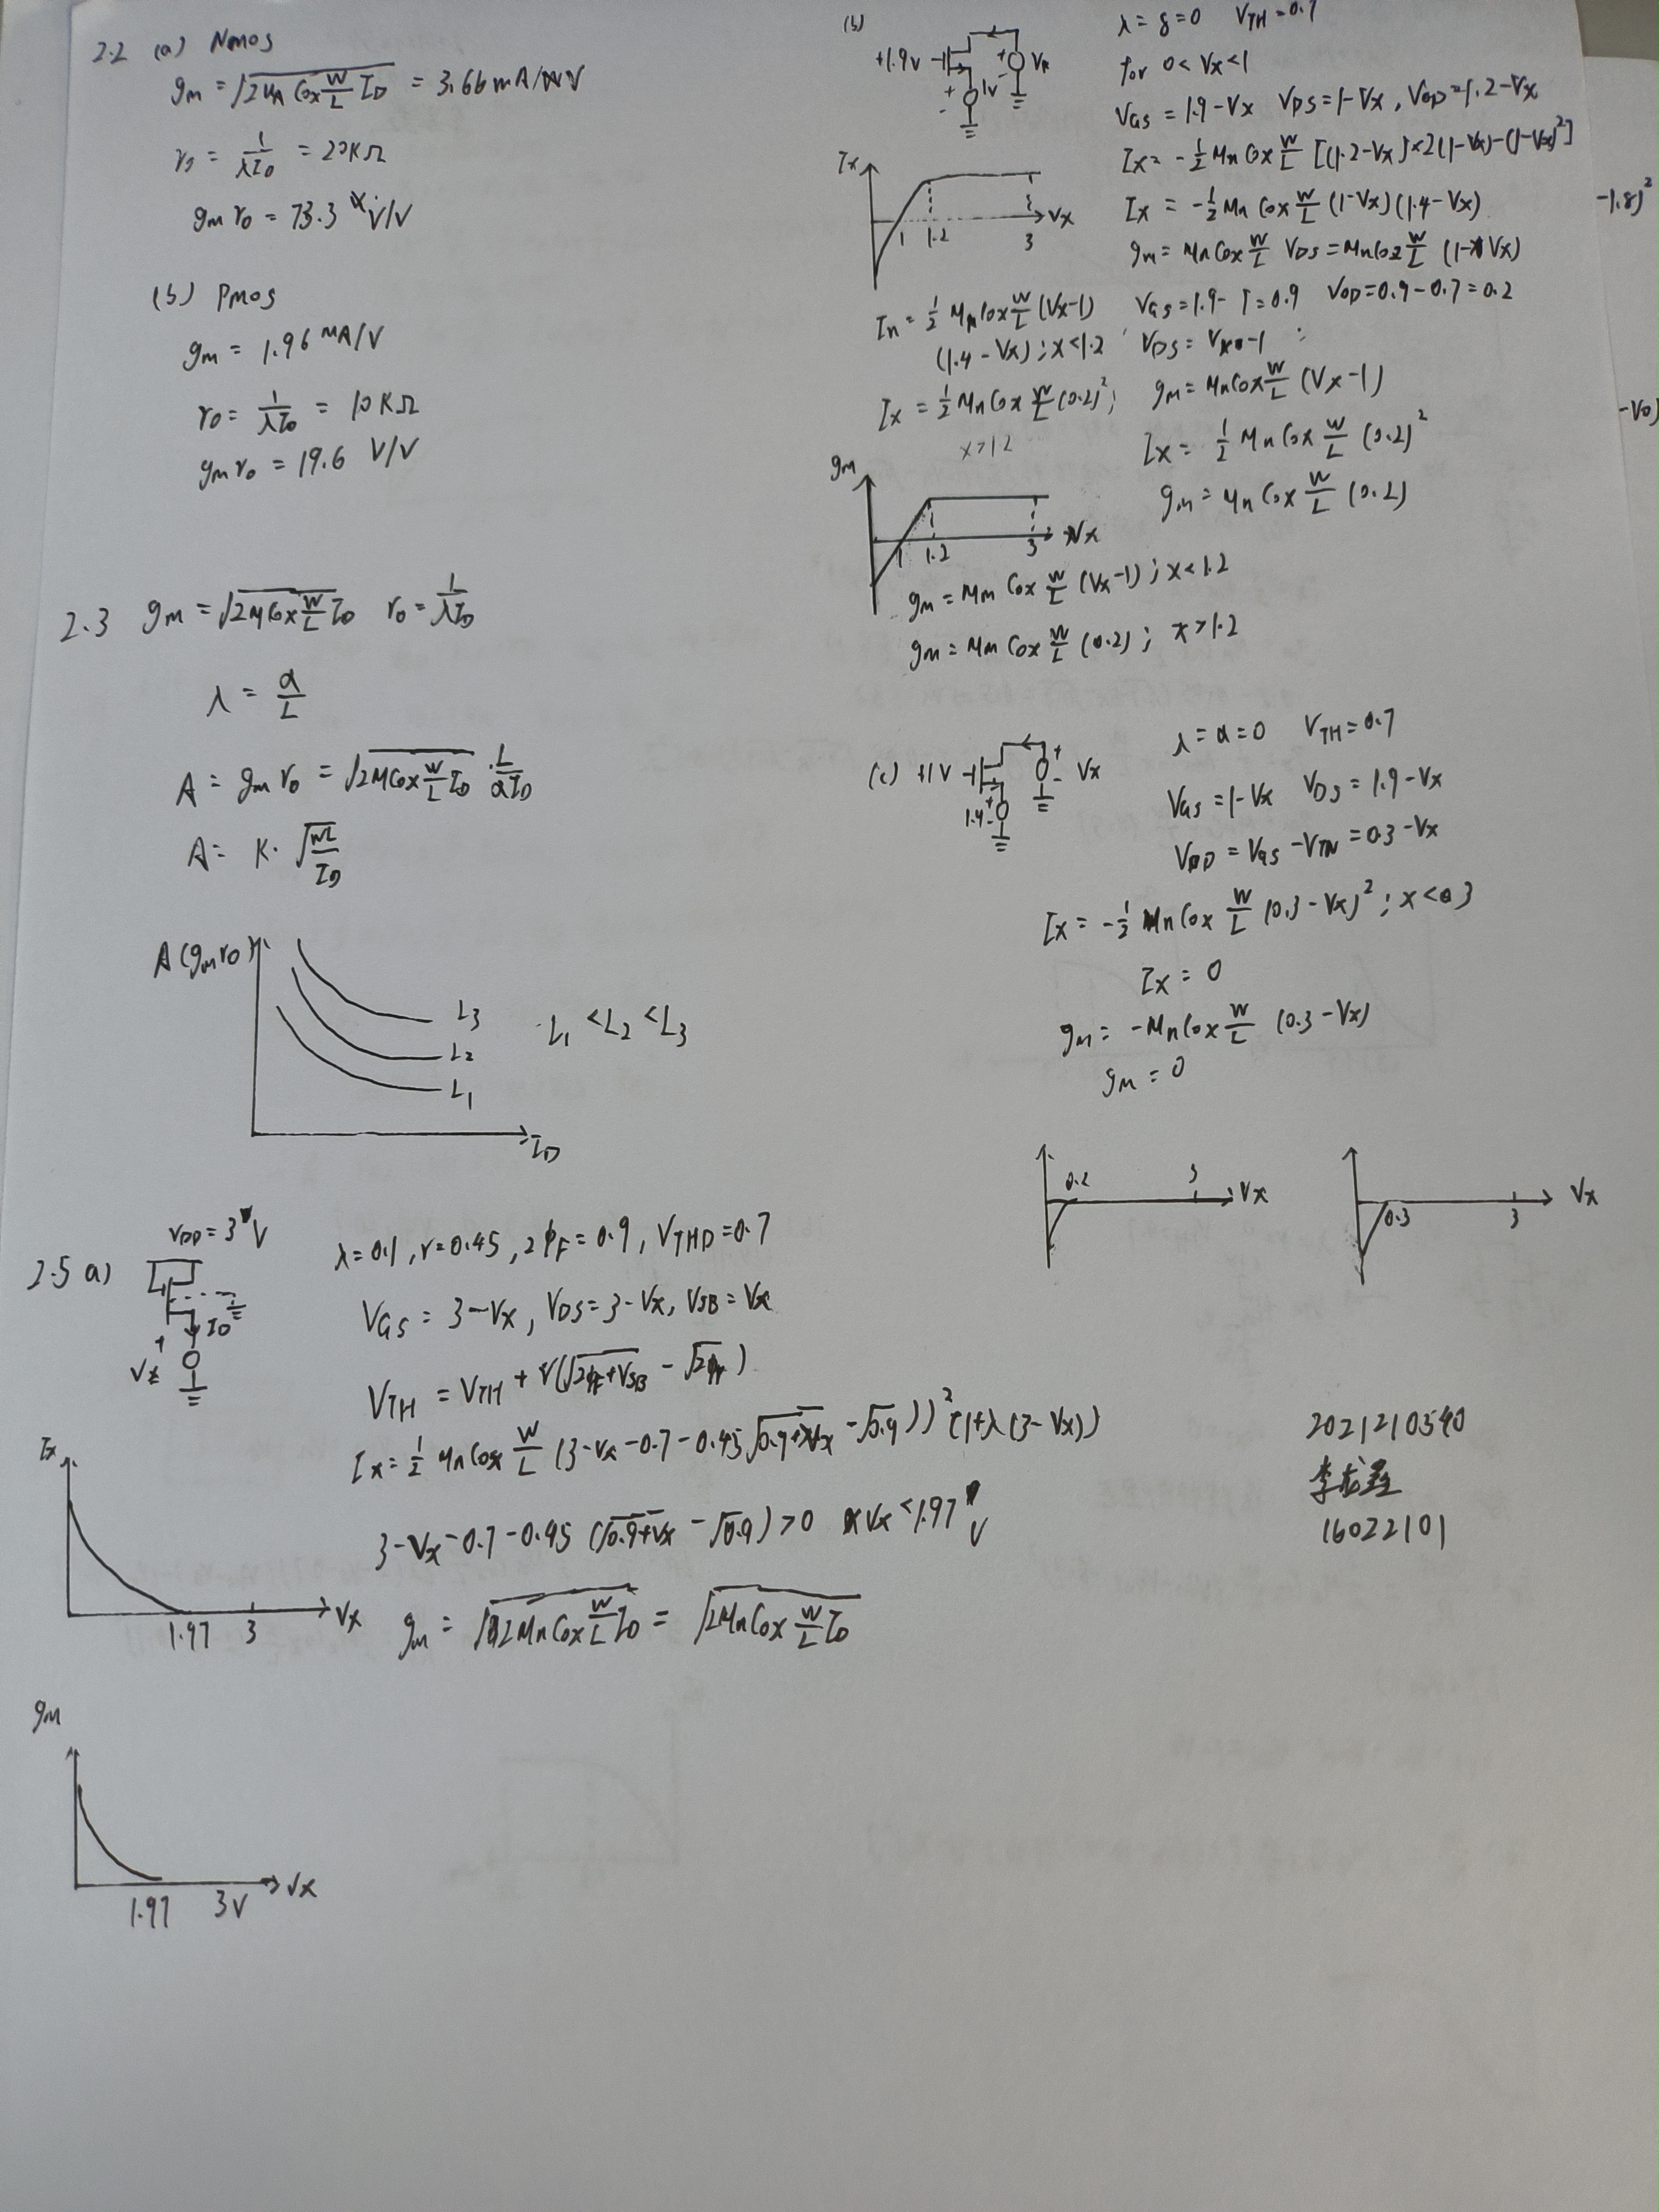 2.2 (a) Nmos
gm = √(2μn Cox W/L ID) = 3.66 mA/V
r0 = 1/(λID) = 20KΩ
gm r0 = 73.3 V/V
(b) Pmos
gm = 1.96 mA/V
r0 = 1/(λI0) = 10KΩ
gm r0 = 19.6 V/V
2.3 gm = √(2μCox W/L ID) r0 = 1/(λID)
λ = α/L
A = gm r0 = √(2μCox W/L ID) · L/(αID)
A = K · √(WL/ID)
A(gmr0)
L3
L2
L1
L1 < L2 < L3
ID
2.5 a)
VDD = 3V
ID
Vx
λ=0.1, r=0.45, 2φF=0.9, VTHD=0.7
VGS = 3-Vx, VDS=3-Vx, VSB=Vx
VTH = VTH + γ(√(2φF+VSB) - √(2φF))
Ix = 1/2 μn Cox W/L (3-Vx-0.7-0.45√(0.9+Vx) - √0.9))² (1+λ(3-Vx))
3-Vx-0.7-0.45 (√(0.9+Vx) - √0.9) > 0 Vx<1.97 V
gm = √(2μnCox W/L ID) = √(2μnCox W/L ID)
Ix
1.97 3 Vx
gm
1.97 3V Vx
(b)
+1.9V
1V
Vx
λ = γ=0 VTH=0.7
for 0<Vx<1
VGS = 1.9-Vx VDS=1-Vx, VOD=1.2-Vx
Ix = -1/2 μn Cox W/L [(1.2-Vx)×2(1-Vx)-(1-Vx)²]
Ix = -1/2 μn Cox W/L (1-Vx)(1.4-Vx)
gm = μnCox W/L VDS = μnCox W/L (1-Vx)
Ix
1 1.2 3 Vx
In = 1/2 μn Cox W/L (Vx-1)
(1.4-Vx); x<1.2
VGS=1.9-1=0.9 VOD=0.9-0.7=0.2
VDS = Vx-1
Ix = 1/2 μn Cox W/L (0.2)²;
x>1.2
gm = μnCox W/L (Vx-1)
Ix = 1/2 μn Cox W/L (0.2)²
gm = μn Cox W/L (0.2)
gm
1 1.2 3 Vx
gm = μn Cox W/L (Vx-1); x<1.2
gm = μn Cox W/L (0.2); x>1.2
-1.8)²
-V0)
(c) +1V
1.4
Vx
λ=α=0 VTH=0.7
VGS=1-Vx VDS=1.9-Vx
VOD = VGS-VTN=0.3-Vx
Ix = -1/2 μn Cox W/L (0.3-Vx)²; x<0.3
Ix = 0
gm = -μnCox W/L (0.3-Vx)
gm = 0
0.2 3 Vx
0.3 3 Vx
2021210540
16022101